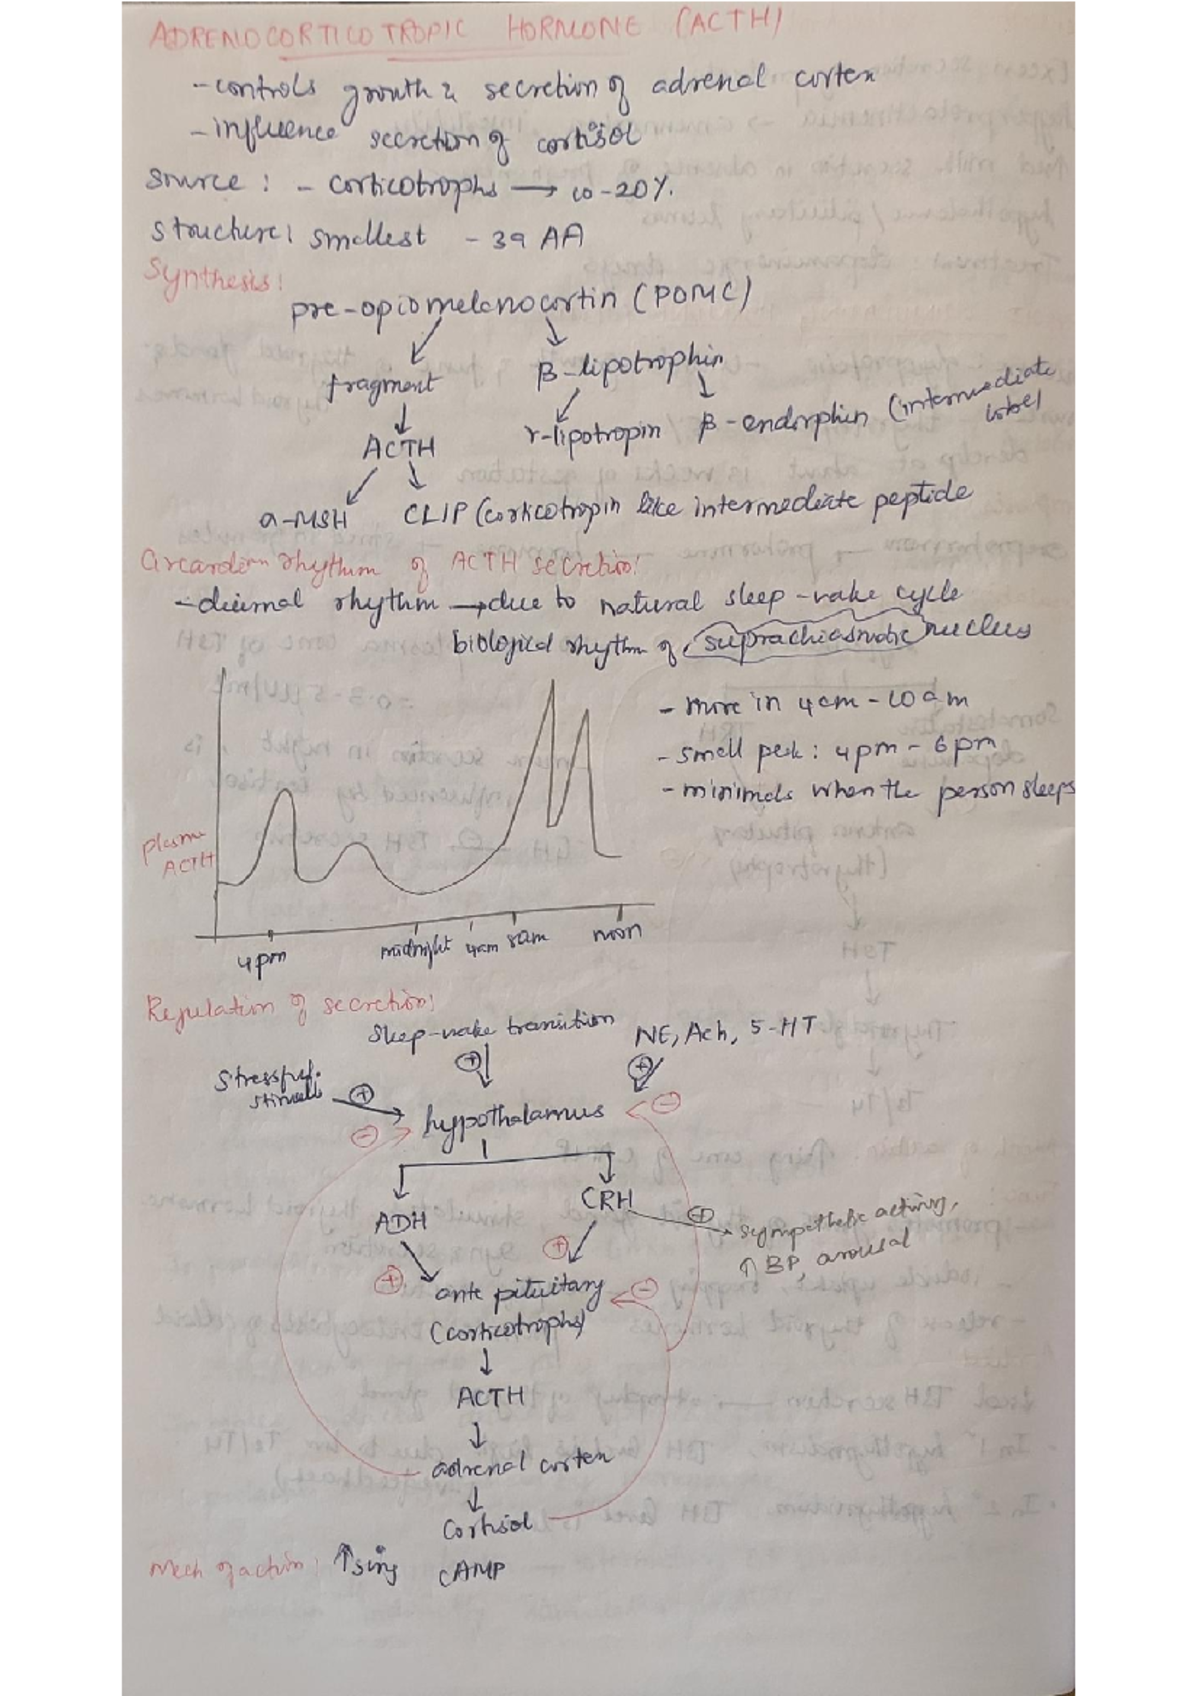 ADRENOCORTICOTROPIC HORMONE (ACTH)
- controls growth & secretion of adrenal cortex
- influence secretion of cortisol
Source : - corticotrophs → 10-20%.
Structure: smallest - 39 AA
Synthesis:
pre-opiomelanocortin (POMC)
fragment
β-lipotrophin
ACTH
γ-lipotropin
β-endorphin (intermediate
lobe)
α-MSH
CLIP (corticotropin like intermediate peptide
Circardian rhythm of ACTH secretion:
- diurnal rhythm → due to natural sleep-wake cycle
biological rhythm of suprachiasmatic nucleus
- more in 4am - 10am
- small peak : 4pm - 6pm
- minimals when the person sleeps
plasma
ACTH
4pm
midnight
4am
8am
noon
Regulation of secretion:
sleep-wake transition
NE, Ach, 5-HT
Stressful
stimuli
+
+
+
-
-
hypothalamus
ADH
CRH
+
sympathetic activity,
↑ BP, arousal
+
+
-
ante pituitary
(corticotrophs)
ACTH
adrenal cortex
Cortisol
Mech of action : ↑sing cAMP